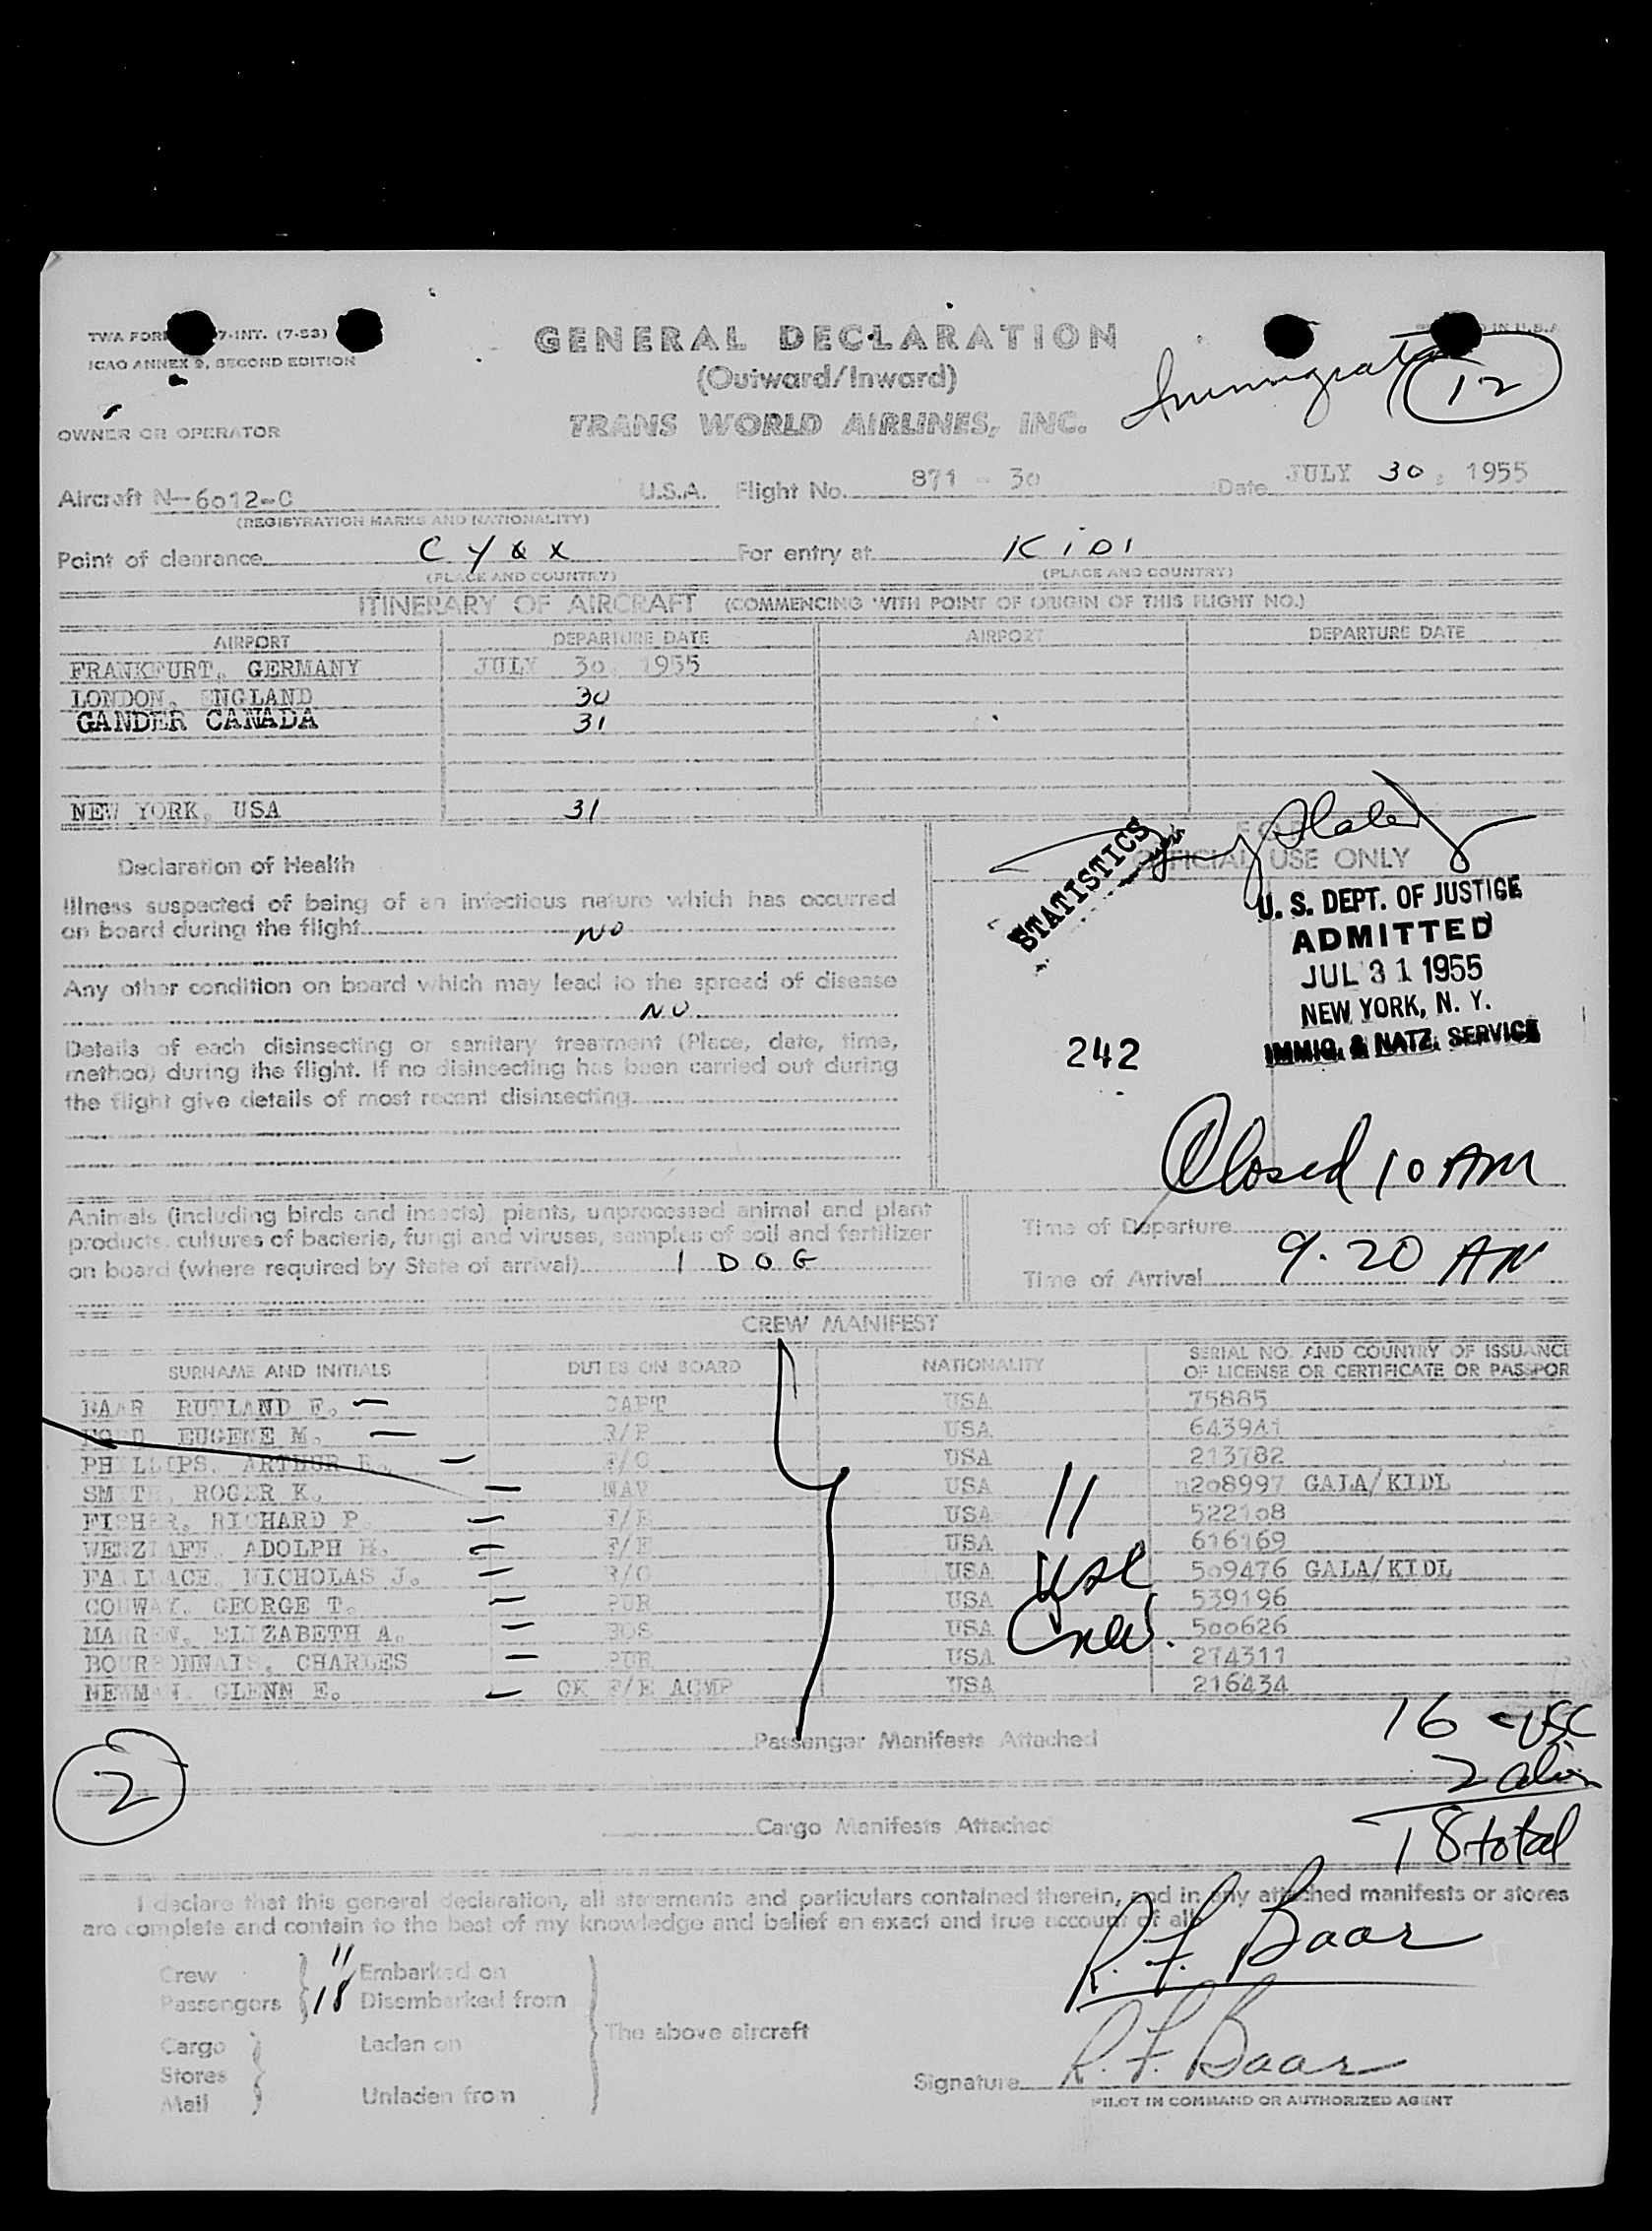 TWA FORM 7-INT. (7-53)
ICAO ANNEX 9, SECOND EDITION
GENERAL DECLARATION
(Outward/Inward)
TRANS WORLD AIRLINES, INC.
12
OWNER OR OPERATOR
Aircraft N-6012-C U.S.A. Flight No. 871 - 30 Date JULY 30, 1955
(REGISTRATION MARKS AND NATIONALITY)
Point of clearance For entry at
(PLACE AND COUNTRY) (PLACE AND COUNTRY)
ITINERARY OF AIRCRAFT (COMMENCING WITH POINT OF ORIGIN OF THIS FLIGHT NO.)
AIRPORT DEPARTURE DATE AIRPORT DEPARTURE DATE
FRANKFURT, GERMANY JULY 30, 1955
LONDON, ENGLAND 30
GANDER CANADA 31
NEW YORK, USA 31
Declaration of Health
Illness suspected of being of an infectious nature which has occurred
on board during the flight NO
Any other condition on board which may lead to the spread of disease
NO
Details of each disinsecting or sanitary treatment (Place, date, time,
method) during the flight. If no disinsecting has been carried out during
the flight give details of most recent disinsecting
OFFICIAL USE ONLY
STATISTICS
U. S. DEPT. OF JUSTICE
ADMITTED
JUL 31 1955
NEW YORK, N. Y.
IMMIG. & NATZ. SERVICE
242
Closed 10 AM
Animals (including birds and insects), plants, unprocessed animal and plant
products, cultures of bacteria, fungi and viruses, samples of soil and fertilizer
on board (where required by State of arrival) 1 DOG
Time of Departure
Time of Arrival 9.20 AM
CREW MANIFEST
SURNAME AND INITIALS DUTIES ON BOARD NATIONALITY SERIAL NO. AND COUNTRY OF ISSUANCE
OF LICENSE OR CERTIFICATE OR PASSPOR
BAAR RUTLAND F. — CAPT USA 75885
FORD EUGENE M. — USA 643941
PHILLIPS, ARTHUR — F/O USA 213782
SMITH, ROGER K. — NAV USA 208997 GALA/KIDL
FISHER, RICHARD P. — F/E USA 522108
ADOLPH H. — F/E USA 616169
FALLACE, NICHOLAS J. — USA 509476 GALA/KIDL
CONWAY, GEORGE T. — PUR USA 539196
ELIZABETH A. — HOS USA 500626
BOURBONNAIS, CHARLES — PUR USA 274311
NEWMAN, GLENN E. — CK F/E ACMP USA 216434
11
USC
Crew.
Passenger Manifests Attached
16 - USC
2 alien
18 total
2
Cargo Manifests Attached
I declare that this general declaration, all statements and particulars contained therein, and in any attached manifests or stores
are complete and contain to the best of my knowledge and belief an exact and true account of all
R. F. Baar
Crew 11 Embarked on
Passengers 18 Disembarked from
The above aircraft
Cargo Laden on
Stores
Mail Unladen from
Signature R. F. Baar
PILOT IN COMMAND OR AUTHORIZED AGENT